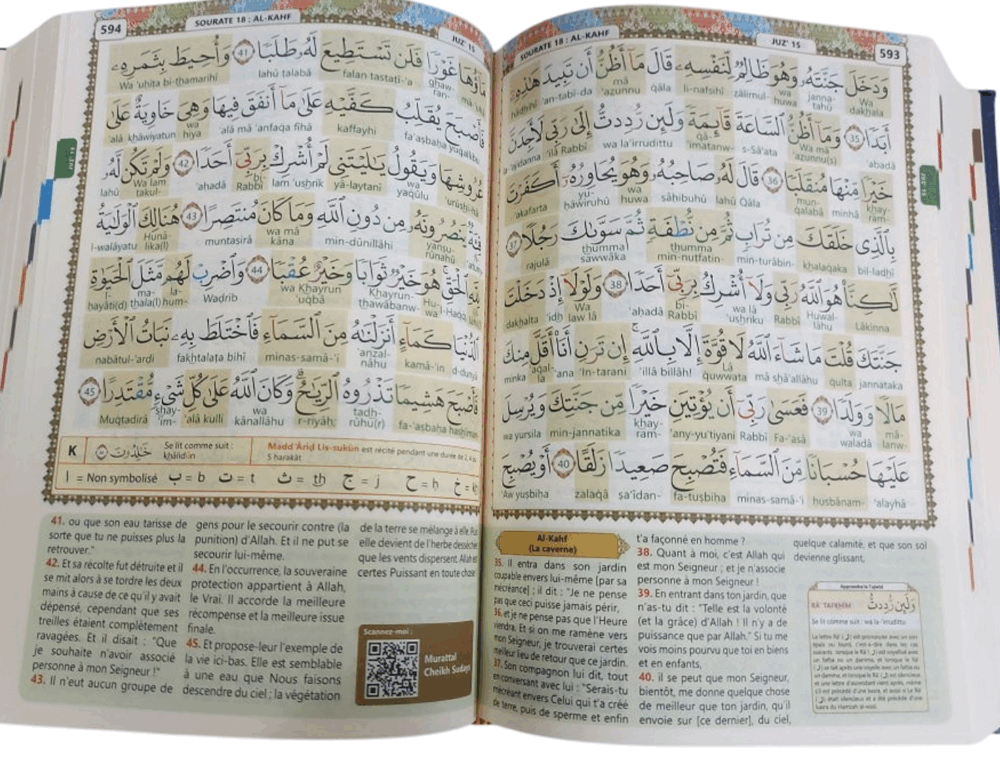 SOURATE 18 : AL-KAHF
JUZ' 15
593
وَدَخَلَ جَنَّتَهُۥ وَهُوَ ظَالِمٌ لِّنَفْسِهِۦ قَالَ مَآ أَظُنُّ أَن تَبِيدَ هَٰذِهِۦٓ
hādhihī 'an-tabi-da 'azunnu mā qāla li-nafsihī zālimul- wa huwa janna-tahū Wa dakhala
أَبَدًا ۝٣٥ وَمَآ أَظُنُّ ٱلسَّاعَةَ قَآئِمَةً وَلَئِن رُّدِدتُّ إِلَىٰ رَبِّى لَأَجِدَنَّ
'ilā Rabbī wa la'irrudittu qā-'imatanw- s-Sā'ata Wa mā 'azunnu(s) 'abadā
خَيْرًا مِّنْهَا مُنقَلَبًا ۝٣٦ قَالَ لَهُۥ صَاحِبُهُۥ وَهُوَ يُحَاوِرُهُۥٓ أَكَفَرْتَ
'akafarta yu-hāwiruhū wa huwa sāhibuhū lahū Qāla mun-qalabā minhā khay-ram-
بِٱلَّذِى خَلَقَكَ مِن تُرَابٍ ثُمَّ مِن نُّطْفَةٍ ثُمَّ سَوَّىٰكَ رَجُلًا ۝٣٧
rajulā thumma sawwāka thumma min-nutfatin- min-turābin- khalaqaka bil-ladhī
لَّٰكِنَّا۠ هُوَ ٱللَّهُ رَبِّى وَلَآ أُشْرِكُ بِرَبِّىٓ أَحَدًا ۝٣٨ وَلَوْلَآ إِذْ دَخَلْتَ
dakhalta 'idh Wa law lā 'ahadā bi-Rabbī wa lā 'ushriku Rabbī Huwal-lāhu Lākinna
جَنَّتَكَ قُلْتَ مَا شَآءَ ٱللَّهُ لَا قُوَّةَ إِلَّا بِٱللَّهِ إِن تَرَنِ أَنَا۠ أَقَلَّ مِنكَ
minka 'aqal-la ana 'In-tarani 'illā billāh! Lā quwwata mā shā'allāhu qulta jannataka
مَالًا وَوَلَدًا ۝٣٩ فَعَسَىٰ رَبِّىٓ أَن يُؤْتِيَنِ خَيْرًا مِّن جَنَّتِكَ وَيُرْسِلَ
wa yursila min-jannatika khay-ram- 'any-yu'tiyani Rabbī Fa-'asā wa waladā mā-lanw-
عَلَيْهَا حُسْبَانًا مِّنَ ٱلسَّمَآءِ فَتُصْبِحَ صَعِيدًا زَلَقًا ۝٤٠ أَوْ يُصْبِحَ
'Aw yusbiha zalaqā sa'īdan- fa-tusbiha minas-samā-'i husbānam- 'alayhā
Al-Kahf
(La caverne)
35. Il entra dans son jardin
coupable envers lui-même [par sa
mécréance] ; il dit : "Je ne pense
pas que ceci puisse jamais périr,
36. et je ne pense pas que l'Heure
viendra. Et si on me ramène vers
mon Seigneur, je trouverai certes
meilleur lieu de retour que ce jardin.
37. Son compagnon lui dit, tout
en conversant avec lui : "Serais-tu
mécréant envers Celui qui t'a créé
de terre, puis de sperme et enfin
t'a façonné en homme ?
38. Quant à moi, c'est Allah qui
est mon Seigneur ; et je n'associe
personne à mon Seigneur !
39. En entrant dans ton jardin, que
n'as-tu dit : "Telle est la volonté
(et la grâce) d'Allah ! Il n'y a de
puissance que par Allah." Si tu me
vois moins pourvu que toi en biens
et en enfants,
40. il se peut que mon Seigneur,
bientôt, me donne quelque chose
de meilleur que ton jardin, qu'il
envoie sur [ce dernier], du ciel,
quelque calamité, et que son sol
devienne glissant,
Apprendre le Tajwîd
RÂ' TAFKHÎM
وَلَئِن رُّدِدتُّ
Se lit comme suit : wa la-'irrudittu
594
SOURATE 18 : AL-KAHF
JUZ' 15
مَآؤُهَا غَوْرًا فَلَن تَسْتَطِيعَ لَهُۥ طَلَبًا ۝٤١ وَأُحِيطَ بِثَمَرِهِۦ
Wa 'uhīta bi-thamarihī lahū talabā falan tastatī-'a ghaw-ran-
فَأَصْبَحَ يُقَلِّبُ كَفَّيْهِ عَلَىٰ مَآ أَنفَقَ فِيهَا وَهِىَ خَاوِيَةٌ عَلَىٰ
'alā khāwiyatun wa hiya 'alā mā 'anfaqa fīhā kaffayhi fa-'asbaha yuqallibu
عُرُوشِهَا وَيَقُولُ يَٰلَيْتَنِى لَمْ أُشْرِكْ بِرَبِّىٓ أَحَدًا ۝٤٢ وَلَمْ تَكُن لَّهُۥ
lahū Wa lam takul- 'ahadā bi-Rabbī lam 'ushrik yā-laytanī wa yaqūlu 'urūshi-hā
فِئَةٌ يَنصُرُونَهُۥ مِن دُونِ ٱللَّهِ وَمَا كَانَ مُنتَصِرًا ۝٤٣ هُنَالِكَ ٱلْوَلَٰيَةُ
l-walāyatu Hunā-lika(l) muntasirā wa mā kāna min-dūnillāhi yansu-rūnahū
لِلَّهِ ٱلْحَقِّ هُوَ خَيْرٌ ثَوَابًا وَخَيْرٌ عُقْبًا ۝٤٤ وَٱضْرِبْ لَهُم مَّثَلَ ٱلْحَيَوٰةِ
l-hayāti(d) ma-thala(l) la-hum- Wadrib wa Khayrun 'uqbā Khayrun-thawābanw- Hu-wa
ٱلدُّنْيَا كَمَآءٍ أَنزَلْنَٰهُ مِنَ ٱلسَّمَآءِ فَٱخْتَلَطَ بِهِۦ نَبَاتُ ٱلْأَرْضِ
nabātul-'ardi fakhtalata bihī minas-samā-'i 'anzal-nāhu kamā-'in d-dunyā
فَأَصْبَحَ هَشِيمًا تَذْرُوهُ ٱلرِّيَٰحُ وَكَانَ ٱللَّهُ عَلَىٰ كُلِّ شَىْءٍ مُّقْتَدِرًا ۝٤٥
Muqtadirā shay-'im- 'alā kulli wa kānallāhu r-riyāh; tadh-rūhu(r) fa-'asbaha hashīman-
K
خَٰلِدُونَ
Se lit comme suit :
khālidūn
Madd 'Ârid Lis-sukûn est récité pendant une durée de 2, 4 ou
5 harakât
ا = Non symbolisé ب = b ت = t ث = th ج = j ح = h خ = kh
41. ou que son eau tarisse de
sorte que tu ne puisses plus la
retrouver."
42. Et sa récolte fut détruite et il
se mit alors à se tordre les deux
mains à cause de ce qu'il y avait
dépensé, cependant que ses
treilles étaient complètement
ravagées. Et il disait : "Que
je souhaite n'avoir associé
personne à mon Seigneur !"
43. Il n'eut aucun groupe de
gens pour le secourir contre (la
punition) d'Allah. Et il ne put se
secourir lui-même.
44. En l'occurrence, la souveraine
protection appartient à Allah,
le Vrai. Il accorde la meilleure
récompense et la meilleure issue
finale.
45. Et propose-leur l'exemple de
la vie ici-bas. Elle est semblable
à une eau que Nous faisons
descendre du ciel ; la végétation
de la terre se mélange à elle. Puis
elle devient de l'herbe desséchée
que les vents dispersent. Allah est
certes Puissant en toute chose !
Scannez-moi :
Murattal
Cheikh Sudays